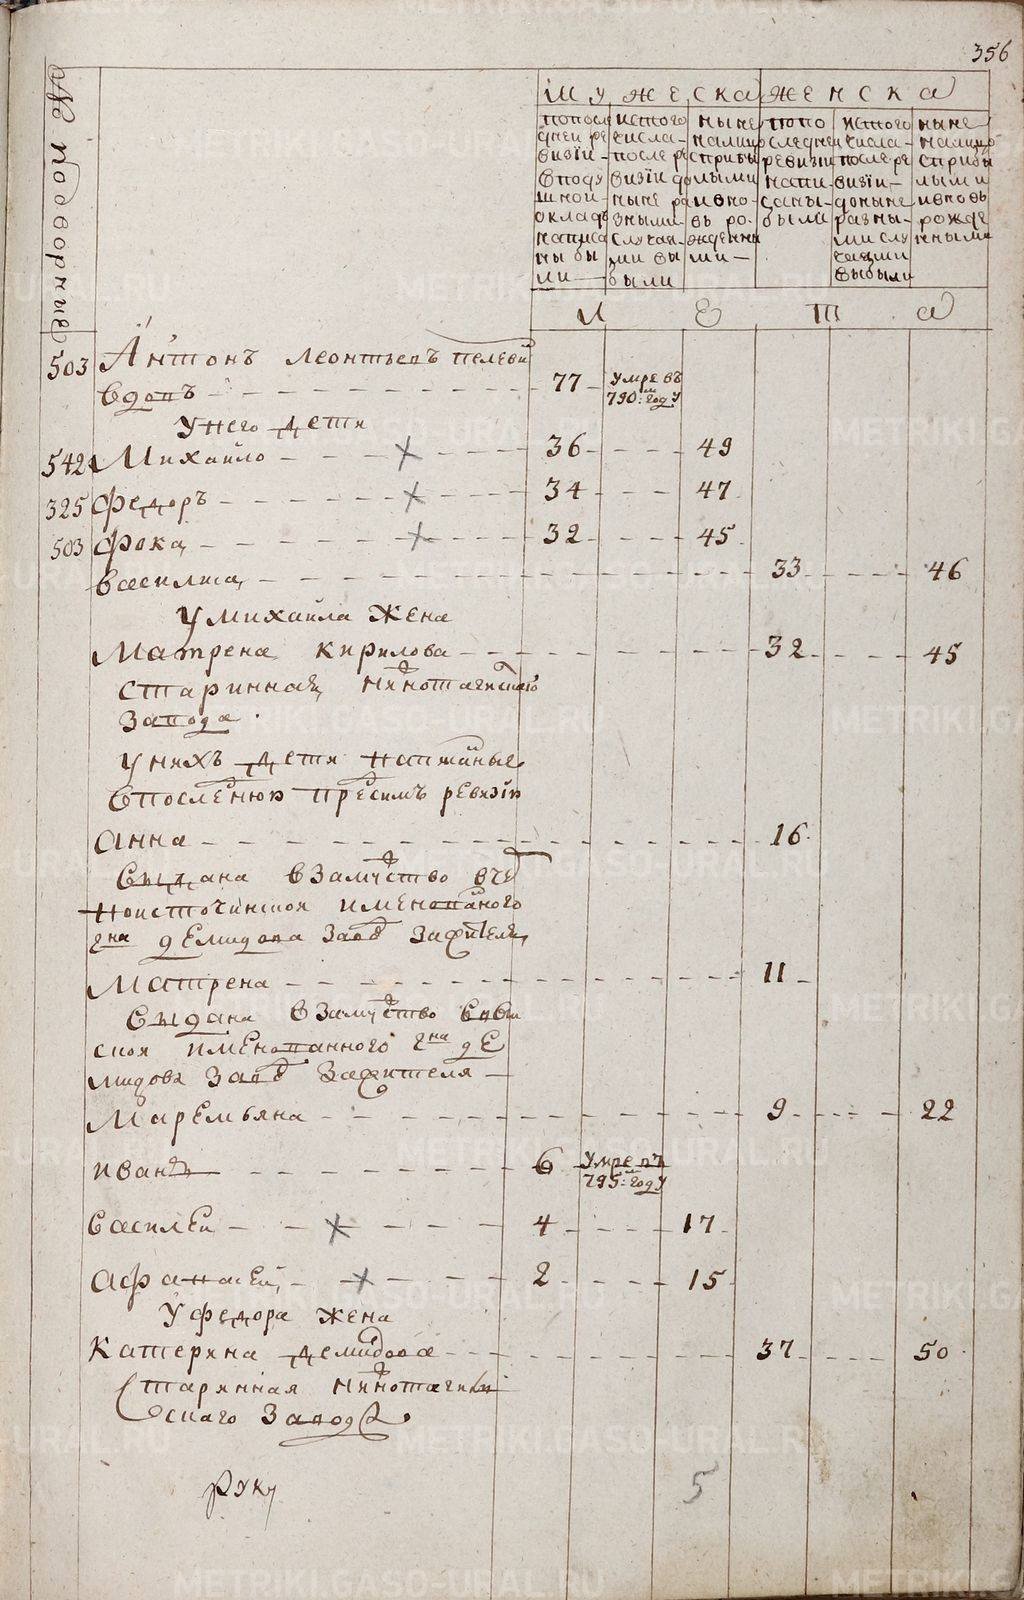 356
№ подворные
мужеска женска
попослѣдней ревизiи вподушной окладъ написаны были
истого числа после ревизiи доныне разными случаями выбыли
ныне налицо сприбылыми ивновь рожденными
попоследней ревизiи написаны были
истого числа после ревизiи доныне разными случаями выбыли
ныне налицо сприбылыми ивновь рожденными
л е т а
503 Антонъ леонтьевъ пелеви
вдовъ 77 умре въ 790м: году
Унего дети
542 Михаило 36 49
325 Федоръ 34 47
503 Фока 32 45
василиса 33 46
У михаила жена
Матрена кирилова 32 45
Стариннаꙗ нижнотагилскаго
завода
У нихъ дети написаные
впоследнюю пред симъ ревизiю
анна 16
выдана взамужство вче
ноисточинской именованого
гдна демидова заводъ зажителя
Матрена 11
выдана взамужство
ской имеованного гдна де
мидова заводъ зажителя
Маремьяна 9 22
иванъ 6 Умре въ 795м: году
василеи 4 17
афанасеи 2 15
У федора жена
Катерина демидова 37 50
Старинная нижнотагил
скаго завода
руку
5
METRIKI.GASO-URAL.RU